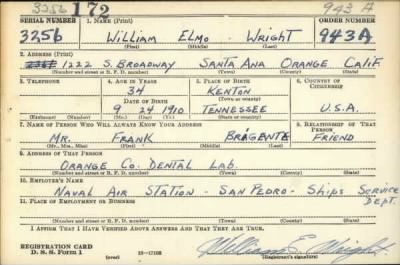 3256 172 943 A
SERIAL NUMBER 1. NAME (Print) ORDER NUMBER
3256 WILLIAM ELMO WRIGHT 943A
(First) (Middle) (Last)
2. ADDRESS (Print)
1222 S. BROADWAY SANTA ANA ORANGE CALIF.
(Number and street or R. F. D. number) (Town) (County) (State)
3. TELEPHONE 4. AGE IN YEARS 5. PLACE OF BIRTH 6. COUNTRY OF CITIZENSHIP
34 KENTON
DATE OF BIRTH (Town or county)
9 24 1910 TENNESSEE U.S.A.
(Exchange) (Number) (Mo.) (Day) (Yr.) (State or country)
7. NAME OF PERSON WHO WILL ALWAYS KNOW YOUR ADDRESS 8. RELATIONSHIP OF THAT PERSON
MR. FRANK BRAGENTZ FRIEND
(Mr., Mrs., Miss) (First) (Middle) (Last)
9. ADDRESS OF THAT PERSON
ORANGE CO. DENTAL LAB.
(Number and street or R. F. D. number) (Town) (County) (State)
10. EMPLOYER'S NAME
NAVAL AIR STATION - SAN PEDRO - SHIPS SERVICE
11. PLACE OF EMPLOYMENT OR BUSINESS DEPT.
(Number and street or R. F. D. number) (Town) (County) (State)
I AFFIRM THAT I HAVE VERIFIED ABOVE ANSWERS AND THAT THEY ARE TRUE.
REGISTRATION CARD
D. S. S. Form 1 (over) William E. Wright
(Registrant's signature)